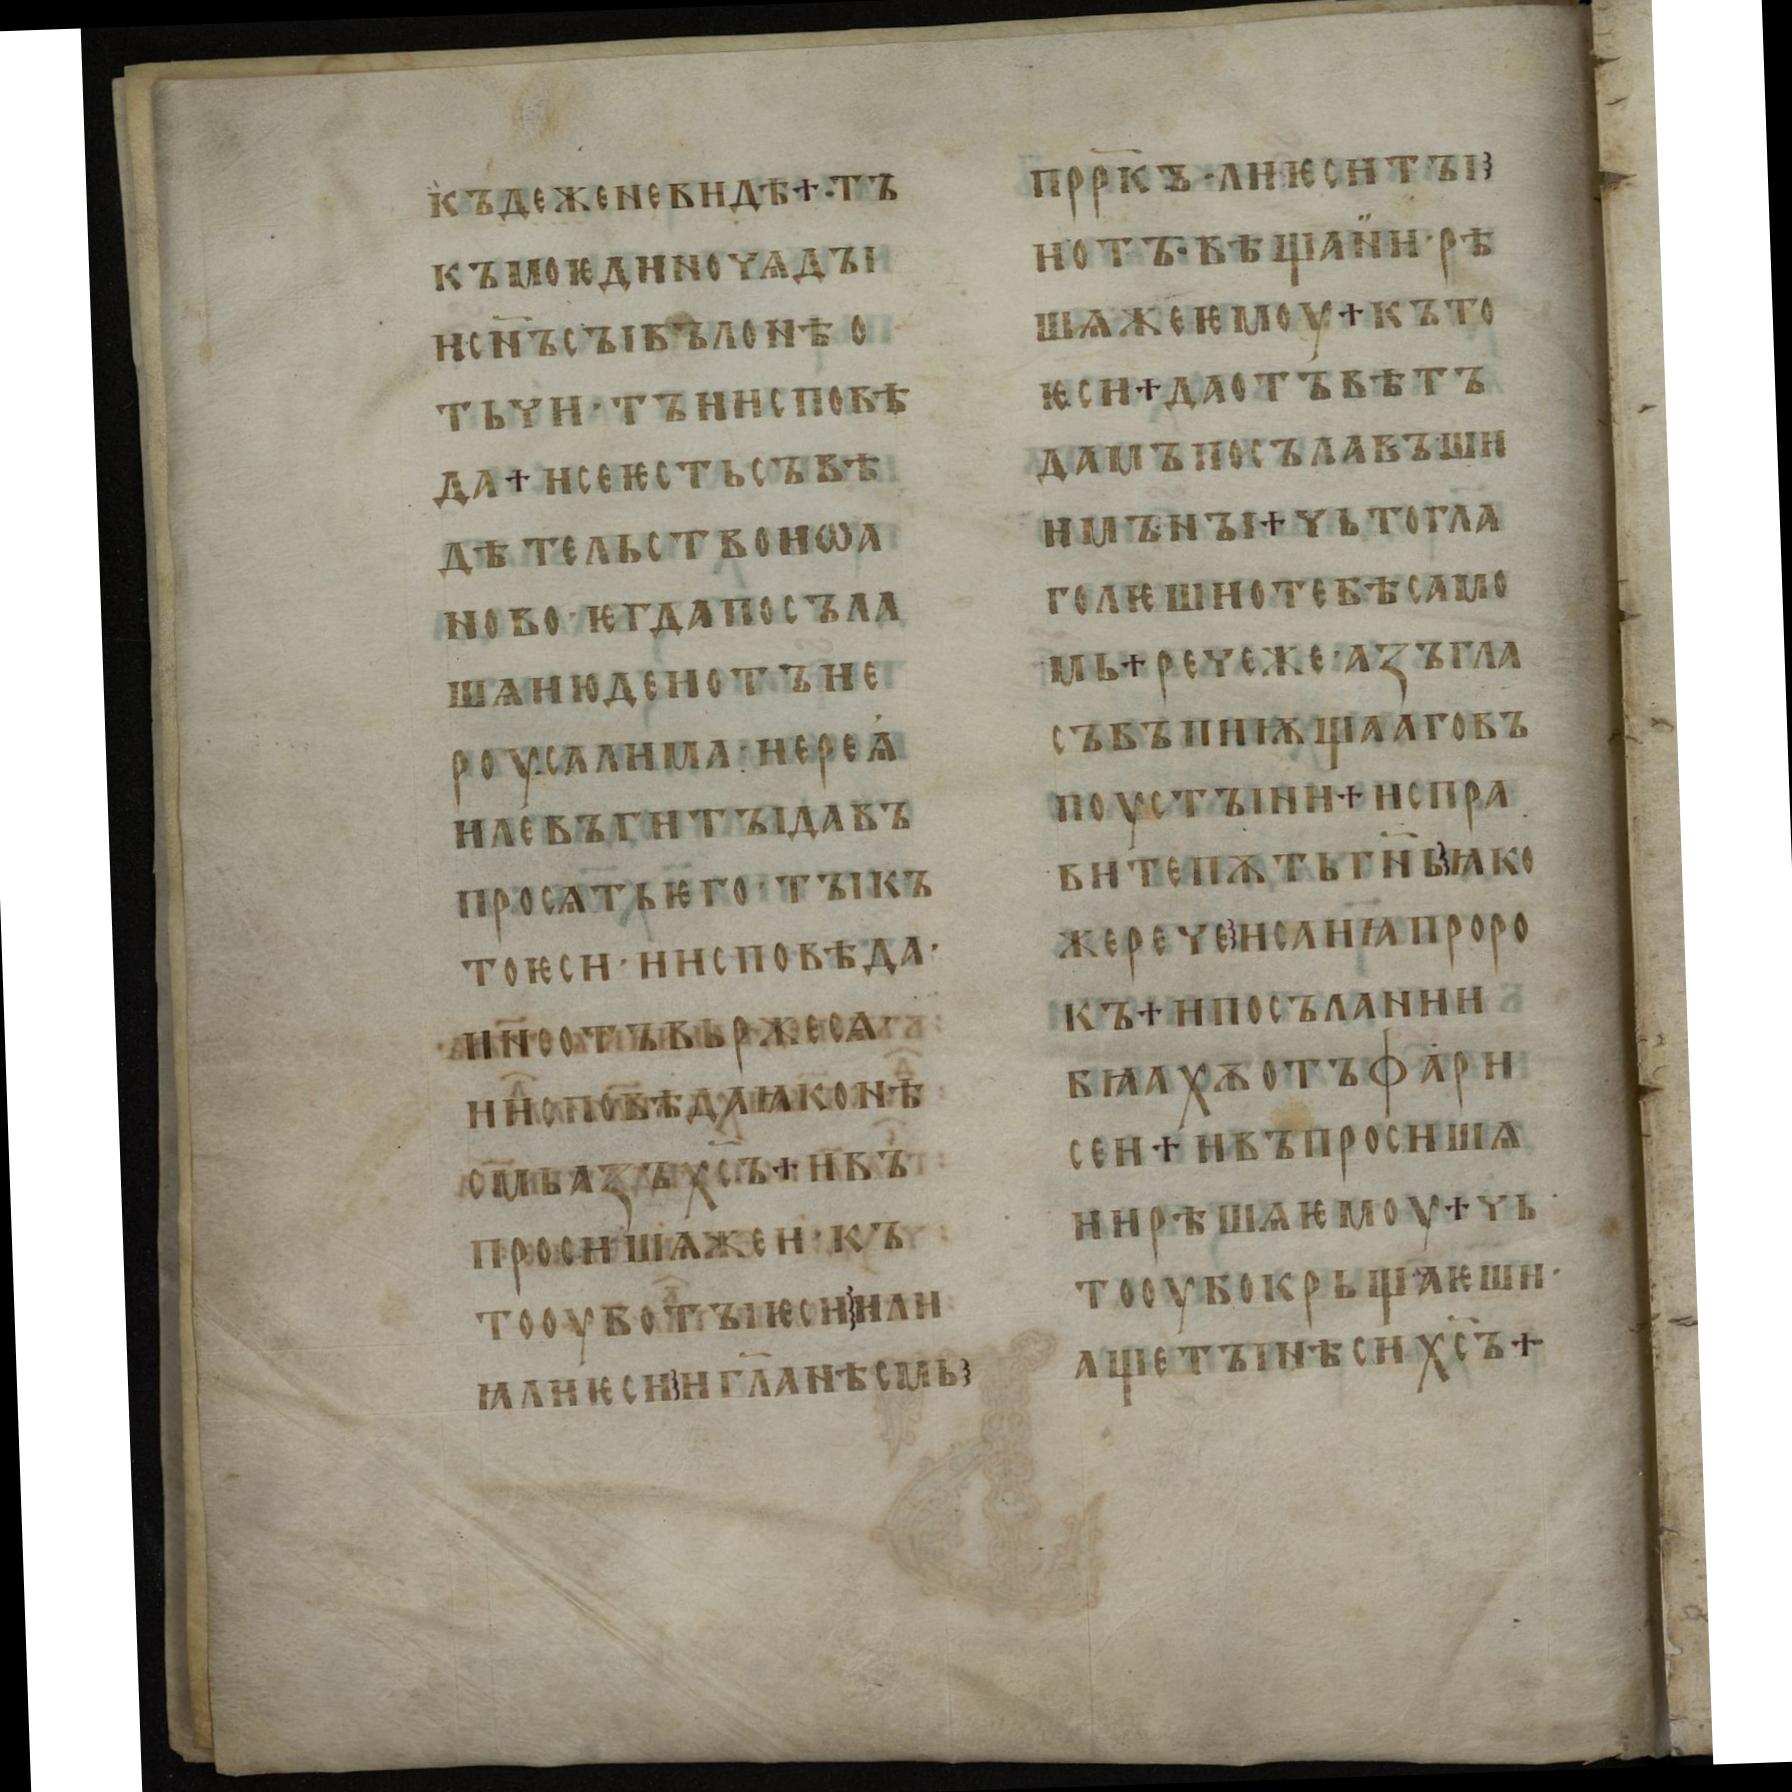 къдеженевидѣ+·тъ
къмоѥдиночѧдꙑ
исн҃ъсꙑвълонѣо
тьчи·тъиисповѣ
да+исеѥстьсъвѣ
дѣтельствоиѡа
ново·ѥгдапосъла
шѧиюдеиотъие
роусалима·иереѧ
илеѵъгитꙑдавъ
просѧтьѥго·тꙑкъ
тоѥси·ииисповѣда·
ин҃еотъвьржесѧ·
ииисповѣдаꙗконѣ
смьазъхс҃ъ+ивъ
просишѧжеи·къ
тооуботꙑѥсиили
ꙗлиѥсиигл҃анѣсмь
прр҃къ·лиѥситꙑ
иотъ·вѣщаӥи·рѣ
шѧжеѥмоу+къто
ѥси+даотъвѣтъ
дамъпосълавъши
имънꙑ+чьтогла
голѥшиотебѣсамо
мь+речеже·азъгла
съвъпиѭщааговъ
поустꙑни+испра
витепѫтьгн҃ьꙗко
жеречеисаиꙗпроро
къ+ипосълании
бꙗахѫотъфари
сеи+ивъпросишѧ
иирѣшѧѥмоу+чь
тооубокрьщаѥши·
ащетꙑнѣсихс҃ъ+